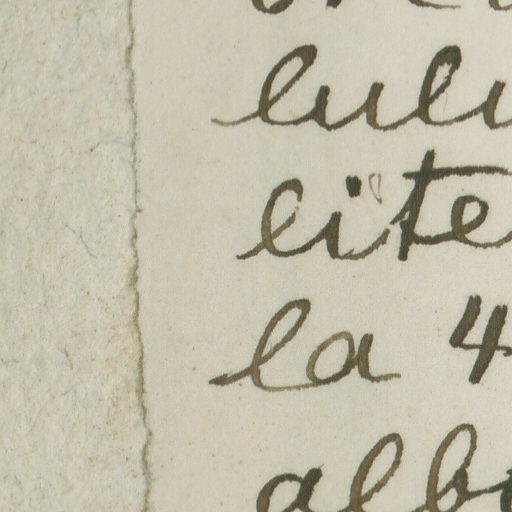 lulu
cite
la 4
albo